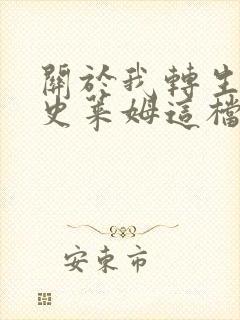 關於我轉生
史萊姆這檔
安東市